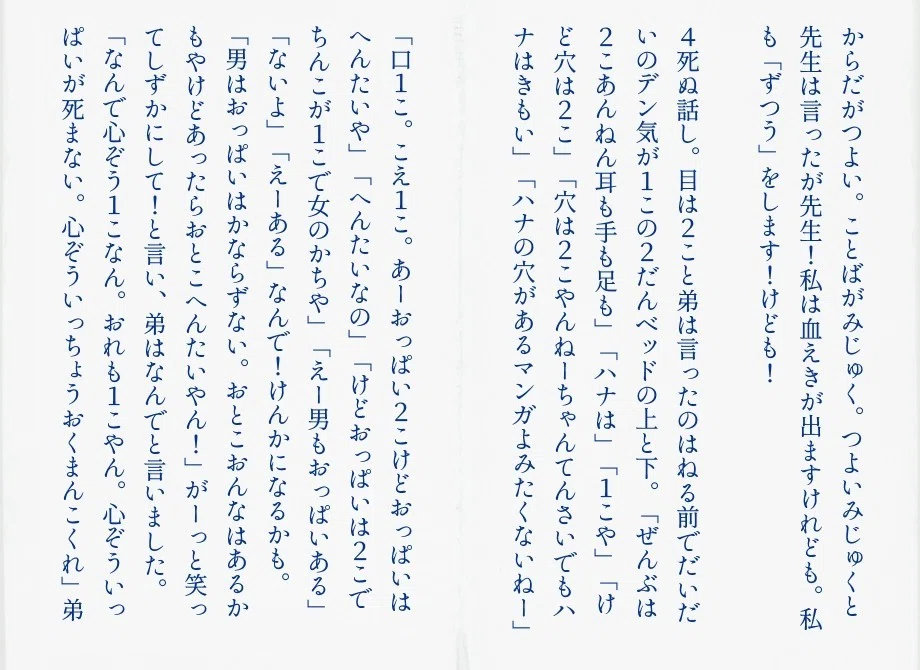 からだがつよい。ことばがみじゅく。つよいみじゅくと
先生は言ったが先生！私は血えきが出ますけれども。私
も「ずつう」をします！けども！
４死ぬ話し。目は２こと弟は言ったのはねる前でだいだ
いのデン気が１この２だんベッドの上と下。「ぜんぶは
２こあんねん耳も手も足も」「ハナは」「１こや」「け
ど穴は２こ」「穴は２こやんねーちゃんてんさいでもハ
ナはきもい」「ハナの穴があるマンガよみたくないねー」
「口１こ。こえ１こ。あーおっぱい２こけどおっぱいは
へんたいや」「へんたいなの」「けどおっぱいは２こで
ちんこが１こで女のかちや」「えー男もおっぱいある」
「ないよ」「えーある」なんで！けんかになるかも。
「男はおっぱいはかならずない。おとこおんなはあるか
もやけどあったらおとこへんたいやん！」がーっと笑っ
てしずかにして！と言い、弟はなんでと言いました。
「なんで心ぞう１こなん。おれも１こやん。心ぞういっ
ぱいが死まない。心ぞういっちょうおくまんこくれ」弟